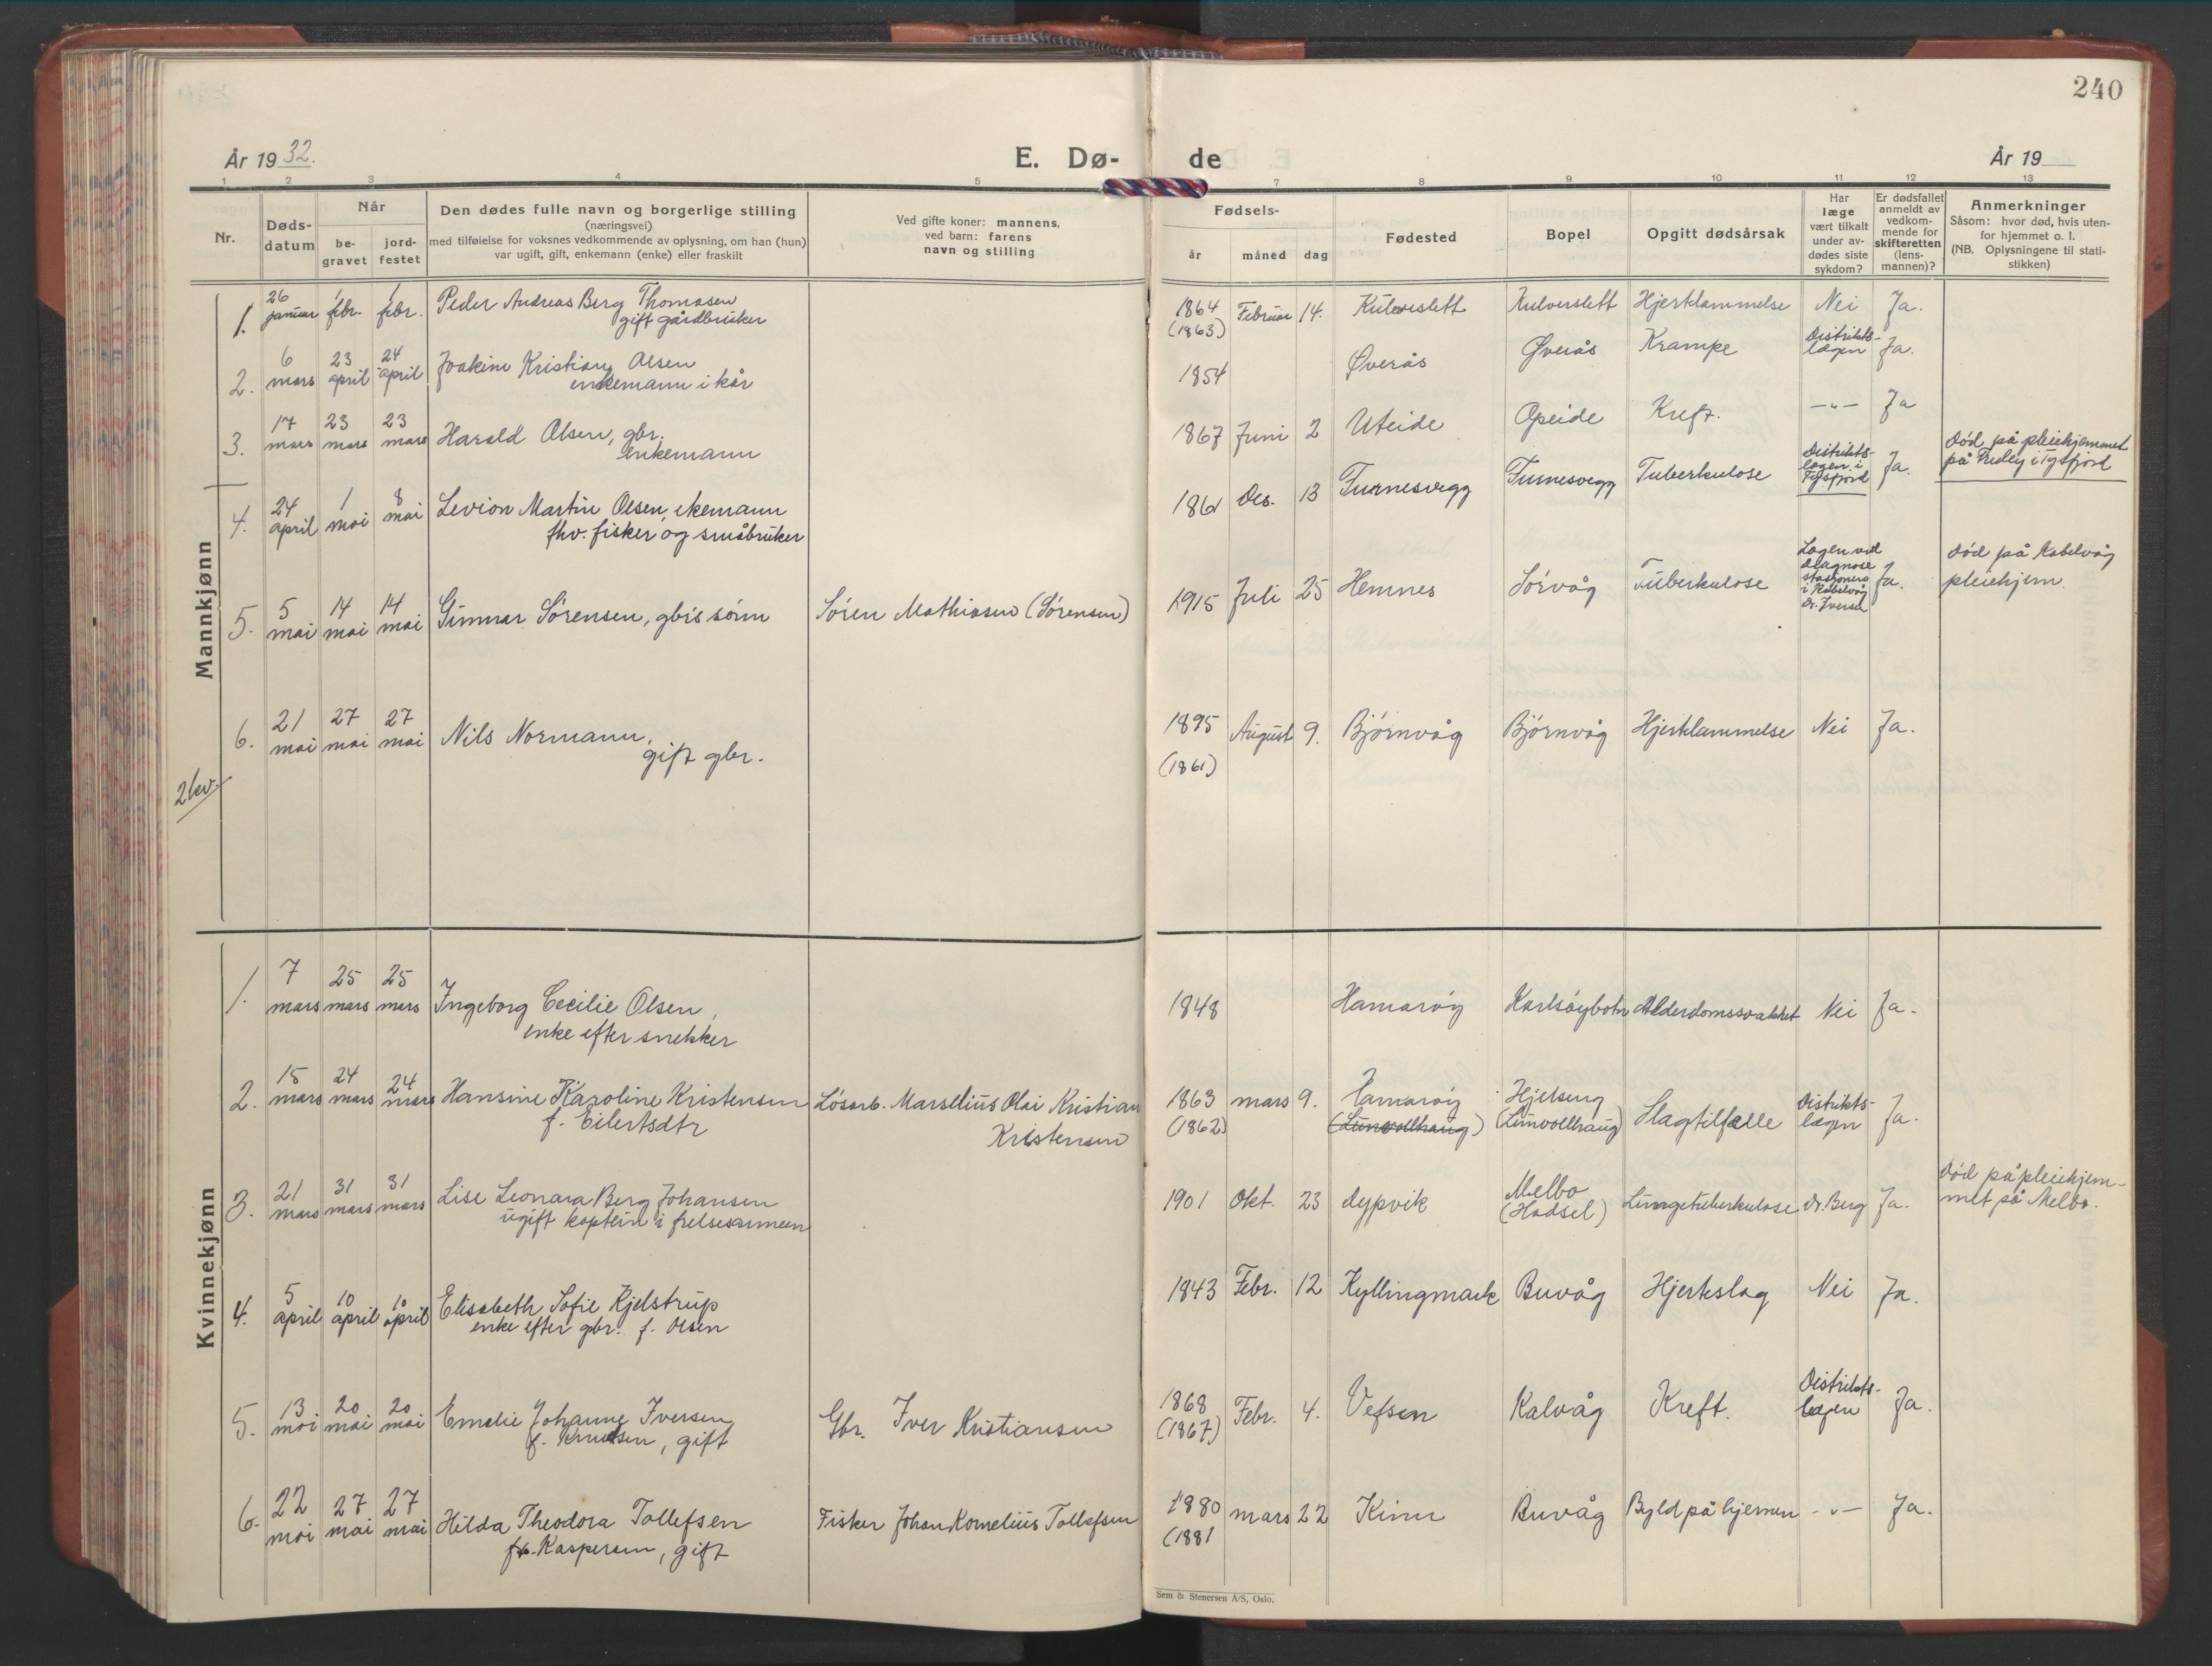 240
År 19 32.
E. Dø-
de
År 19
1 2 3 4 5
7 8 9 10 11 12 13
Nr.
Døds-
datum
Når
be-
gravet
jord-
festet
Den dødes fulle navn og borgerlige stilling
(næringsvei)
med tilføielse for voksnes vedkommende av oplysning, om han (hun)
var ugift, gift, enkemann (enke) eller fraskilt
Ved gifte koner: mannens,
ved barn: farens
navn og stilling
Fødsels-
år måned dag
Fødested
Bopel
Opgitt dødsårsak
Har
læge
vært tilkalt
under av-
dødes siste
sykdom?
Er dødsfallet
anmeldt av
vedkom-
mende for
skifteretten
(lens-
mannen)?
Anmerkninger
Såsom: hvor død, hvis uten-
for hjemmet o. l.
(NB. Oplysningene til stati-
stikken)
Mannkjønn
1. 26 januar 1 febr. 1 febr. Peder Andreas Berg Thomasen
gift gårdbruker
1864 Februar 14. Kulverslett Kulverslett Hjertelammelse Nei Ja.
(1863)
2. 6 mars 23 april 24 april Joakim Kristian Olsen
enkemann i kår
1854 Øverås Øverås Krampe Distrikts-
lægen Ja.
3. 17 mars 23 mars 23 mars Harald Olsen, gbr.
enkemann
1867 Juni 2 Uteide Opeide Kreft. -"- Ja
4. 24 april 1 mai 8 mai Levion Martin Olsen, ekemann
fhv. fisker og småbruker
1861 Des. 13 Furnesvegg Furnesvegg Tuberkulose Distrikts-
lægen i
Tysfjord Ja.
død på pleiehjemmet
på Furløy i Tysfjord
5. 5 mai 14 mai 14 mai Gunnar Sørensen, gbr's sønn Søren Mathiasen (Sørensen)
1915 Juli 25 Hemnes Sørvåg Tuberkulose Lægen ved
diagnose
stasjonen
i Kabelvåg
Dr. Iversen Ja.
død på Kabelvåg
pleiehjem.
6. 21 mai 27 mai 27 mai Nils Normann,
gift gbr.
1895 August 9. Bjørnvåg Bjørnvåg Hjertelammelse Nei Ja.
(1861)
2 kv.
Kvinnekjønn
1. 7 mars 25 mars 25 mars Ingeborg Cecilie Olsen,
enke efter snekker
1848 Hamarøy Karlsøybotn Alderdomssvakhet Nei Ja.
2. 15 mars 24 mars 24 mars Hansine Karoline Kristensen Løsarb. Marselius Olai Kristian
f. Eilertsdtr Kristensen
1863 mars 9. Hamarøy Hjelseng Slagtilfælle Distrikts-
lægen Ja.
(1862) (Lunvollhaug) (Lunvollhaug)
3. 21 mars 31 mars 31 mars Lise Leonara Berg Johansen
ugift kaptein i frelsesarmeen
1901 Okt. 23 dypvik Melbo
(Hadsel) Lungetuberkulose Dr. Berg Ja.
død på pleiehjem-
met på Melbo.
4. 5 april 10 april 10 april Elisabeth Sofie Kjelstrup
enke efter gbr. f. Olsen
1843 Febr. 12 Kyllingmark Buvåg Hjerteslag Nei Ja.
5. 13 mai 20 mai 20 mai Emelie Johanne Iversen Gbr. Iver Kristiansen
f. Knudsen, gift
1868 Febr. 4. Vefsen Kalvåg Kreft. Distrikts-
lægen Ja.
(1867)
6. 22 mai 27 mai 27 mai Hilda Theodora Tollefsen Fisker Johan Kornelius Tollefsen
f. Kaspersen, gift
1880 mars 22 Kinn Buvåg Byld på hjernen -"- Ja.
(1881
Sem & Stenersen A/S, Oslo.